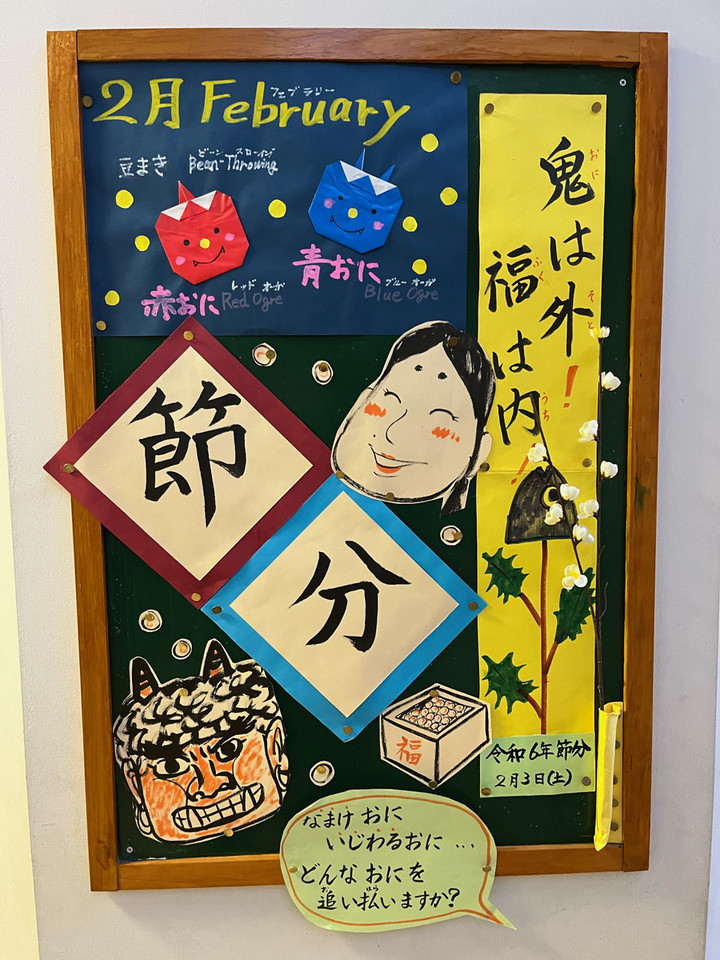 フェブラリー
2月 February
ビーン スローイング
豆まき Bean-Throwing
青おに
ブルー オーガ
Blue Ogre
赤おに
レッド オーガ
Red Ogre
おに そと
鬼は外!
ふく うち
福は内!
節
分
福
令和6年節分
2月3日(土)
なまけ おに
いじわるおに…
どんな おにを
お はら
追い払いますか?